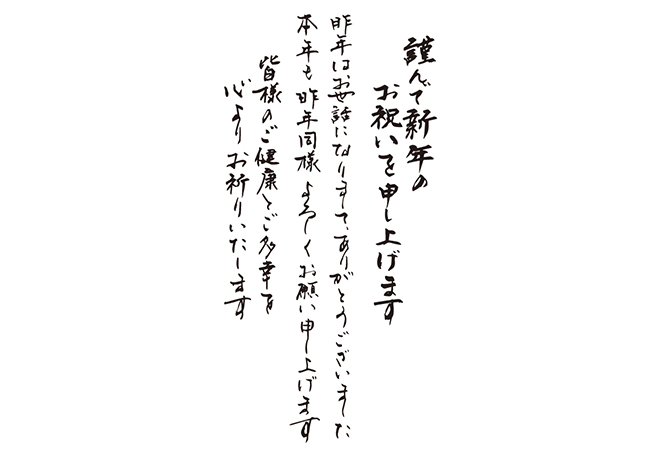 謹んで新年の
お祝いを申し上げます
昨年はお世話になりまして、ありがとうございました
本年も昨年同様よろしくお願い申し上げます
皆様のご健康とご多幸を
心よりお祈りいたします